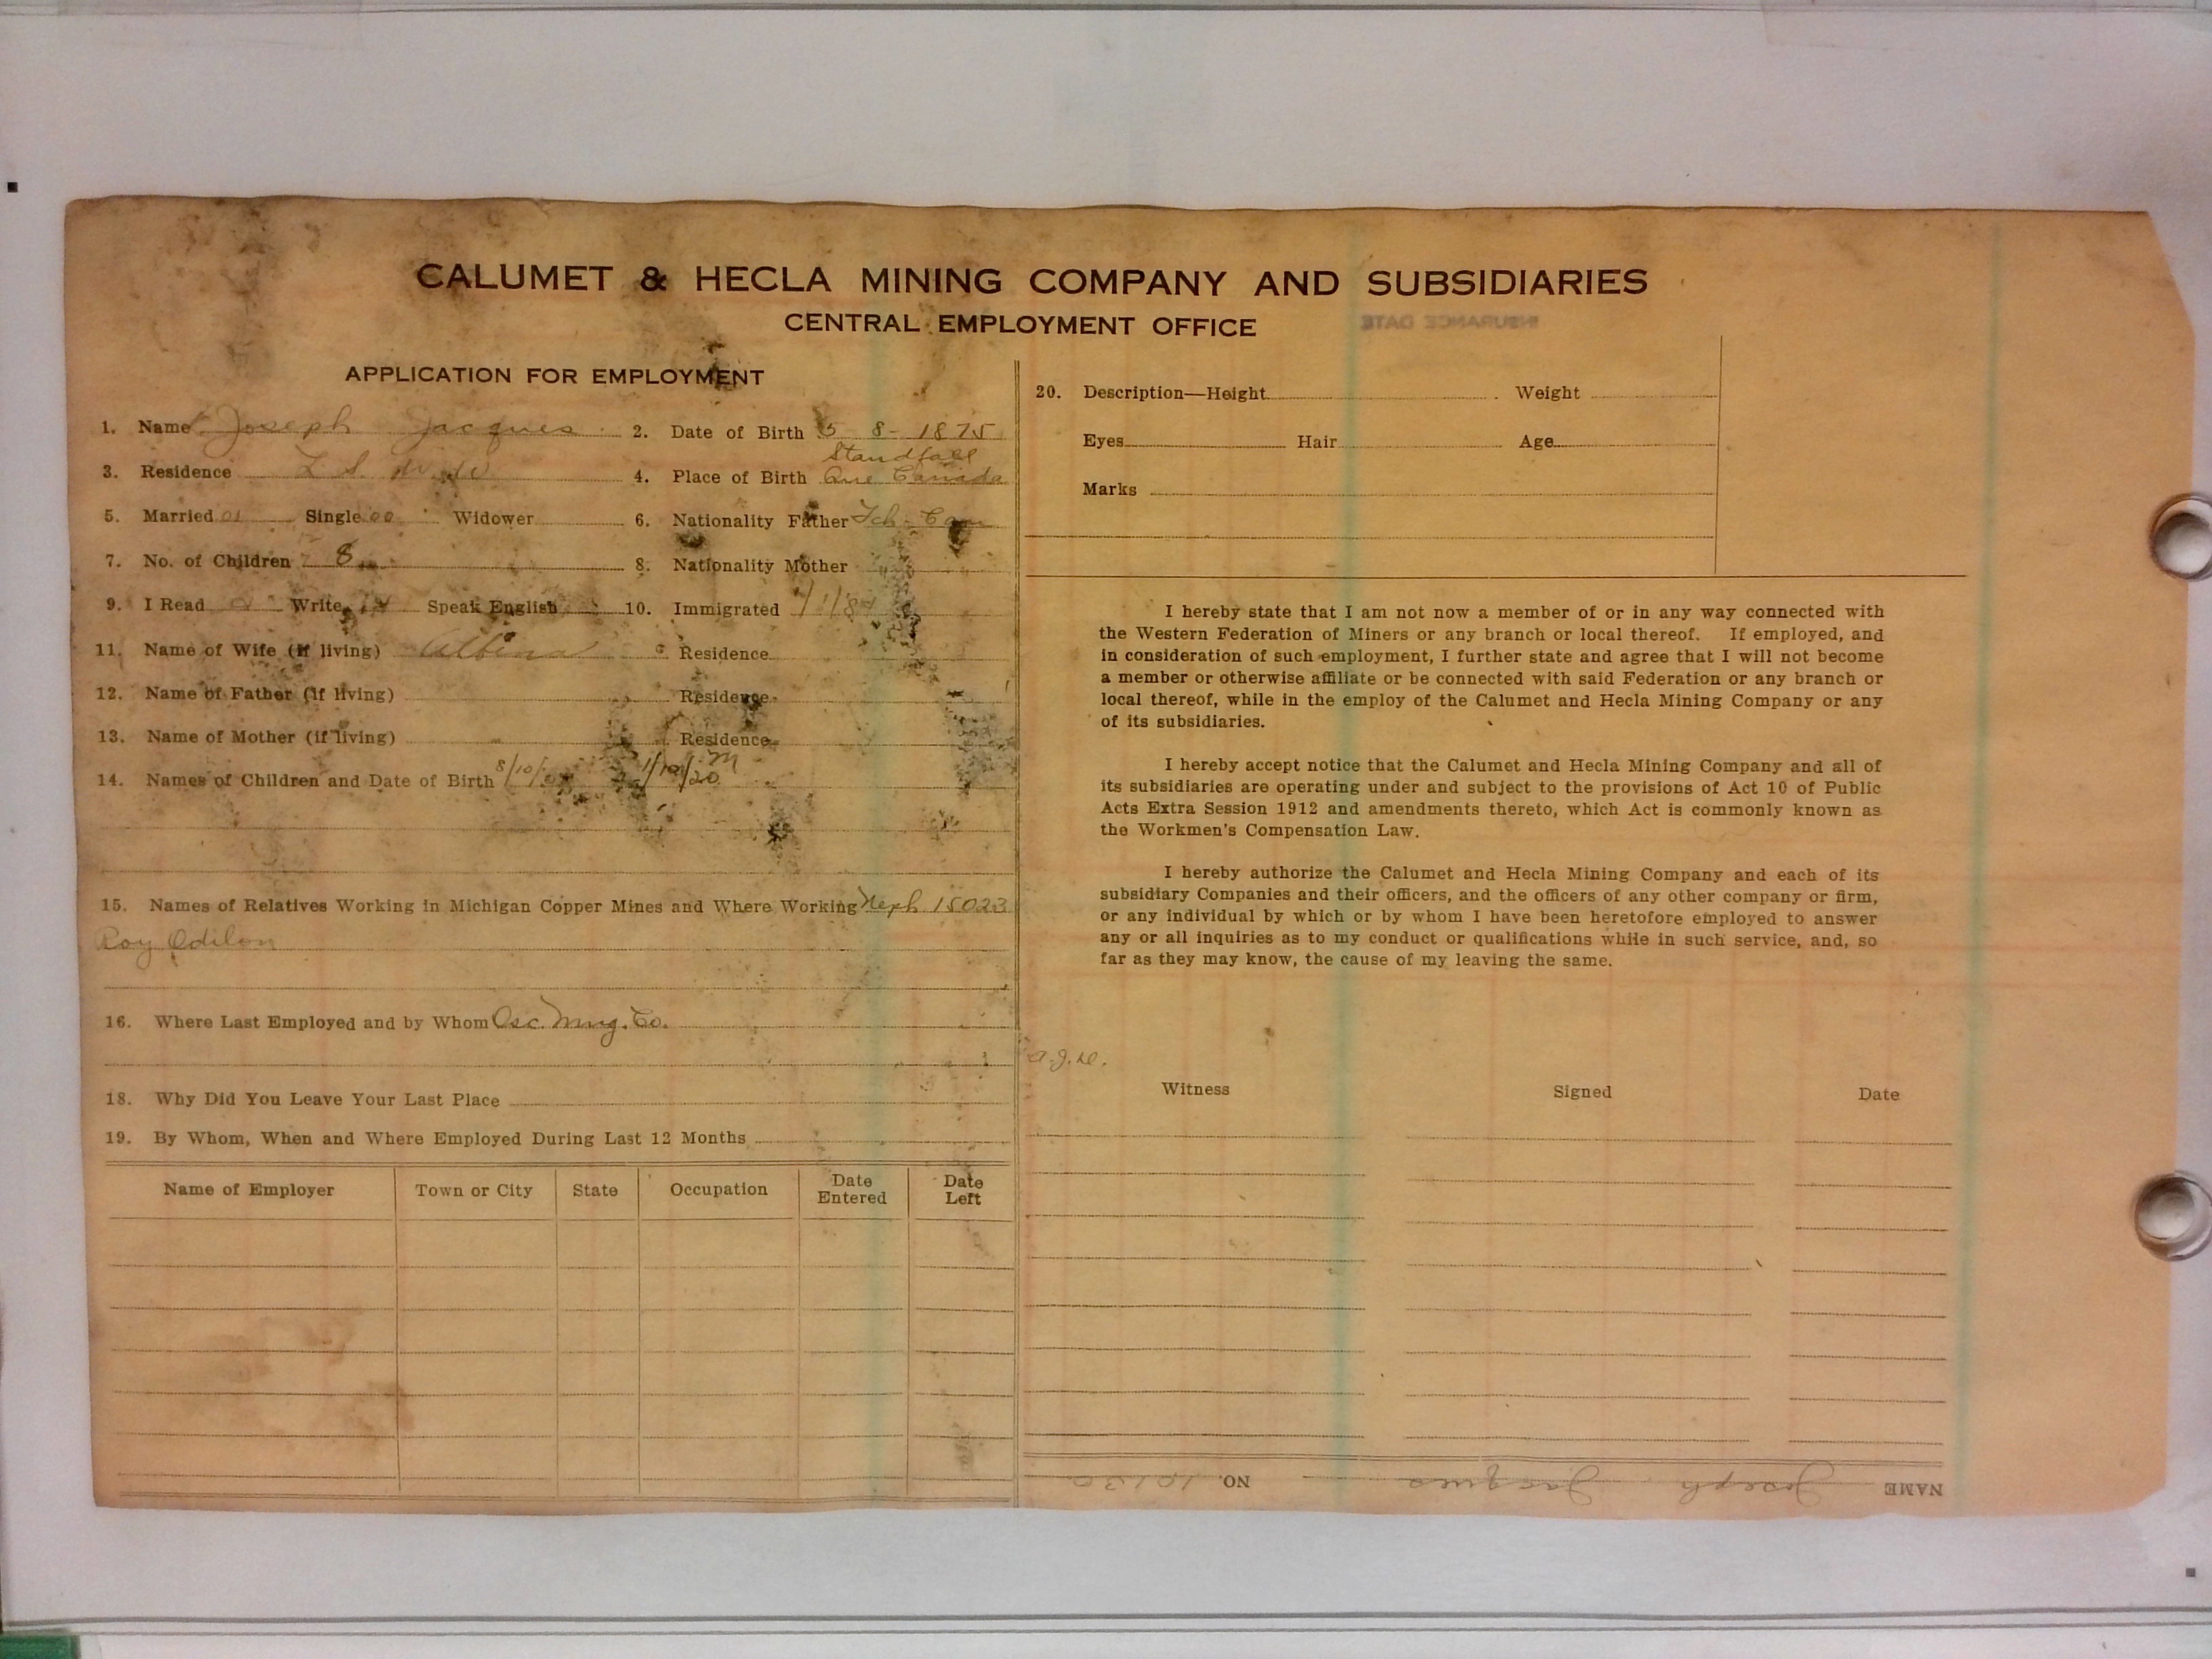 CALUMET & HECLA MINING COMPANY AND SUBSIDIARIES
CENTRAL EMPLOYMENT OFFICE
INSURANCE DATE
APPLICATION FOR EMPLOYMENT
1. Name Joseph Jacques 2. Date of Birth 5-8-1875
3. Residence L. S. 4. Place of Birth Standfall Que Canada
5. Married Single Widower 6. Nationality Father Fch-Can
7. No. of Children 8 8. Nationality Mother
9. I Read Write Speak English 10. Immigrated
11. Name of Wife (if living) Albina Residence
12. Name of Father (if living) Residence
13. Name of Mother (if living) Residence
14. Names of Children and Date of Birth 8/10/
15. Names of Relatives Working in Michigan Copper Mines and Where Working Neph 15023
Roy Odilon
16. Where Last Employed and by Whom Osc. Mng. Co.
18. Why Did You Leave Your Last Place
19. By Whom, When and Where Employed During Last 12 Months
Name of Employer Town or City State Occupation Date Entered Date Left
20. Description—Height Weight
Eyes Hair Age
Marks
I hereby state that I am not now a member of or in any way connected with
the Western Federation of Miners or any branch or local thereof. If employed, and
in consideration of such employment, I further state and agree that I will not become
a member or otherwise affiliate or be connected with said Federation or any branch or
local thereof, while in the employ of the Calumet and Hecla Mining Company or any
of its subsidiaries.
I hereby accept notice that the Calumet and Hecla Mining Company and all of
its subsidiaries are operating under and subject to the provisions of Act 10 of Public
Acts Extra Session 1912 and amendments thereto, which Act is commonly known as
the Workmen's Compensation Law.
I hereby authorize the Calumet and Hecla Mining Company and each of its
subsidiary Companies and their officers, and the officers of any other company or firm,
or any individual by which or by whom I have been heretofore employed to answer
any or all inquiries as to my conduct or qualifications while in such service, and, so
far as they may know, the cause of my leaving the same.
Witness Signed Date
NAME Joseph Jacques NO. 10130